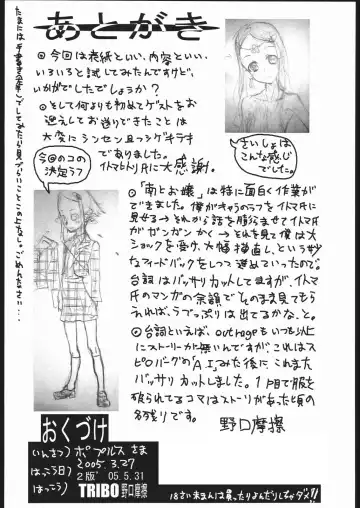 あとがき
◎今回は表紙といい、内容といい、
いろいろと試してみたんですけど、
いかがでしたでしょうか？
◎そして何よりも初めてゲストをお
迎えしてお送りできたことは
大変にシンセン且つシゲキテキ
でありました。
イトマトトリ氏に大感謝。
さいしょは
こんな感じ
でした。
今回のコの
決定ラフ
◎「南とお嬢」は特に面白く作業が
できました。僕がキャラのラフをイトマ氏に
見せる→それから話を膨らませてイトマ氏
がガンガンかく→それを見て僕は大
ショックを受け、大幅描直し、という妙
なフィードバックをしつつ進めていったので。
台詞はバッサリカットしてますが、イトマ
氏のマンガの余韻でそのまま見てもら
えれば、らぶっぷりは出てるかな、と。
◎台詞といえば、outrageもいつも以上
にストーリーが無いんですが、これはス
ピルバーグの「A.I.」みた後にこれまた
バッサリカットしました。1P目で服を
破られてるコマはストーリーがあった頃の
名残りです。
野口摩擦
たまには手書き(全部)でしてみたら見づらいことこの上なし。ごめんなさい…
おくづけ
いんさつ ポプルス さま
はっこう日 2005.3.27
2版 '05.5.31
はっこう TRIBO 野口摩擦
18さい未まんは買ったりよんだりしちゃダメ!!